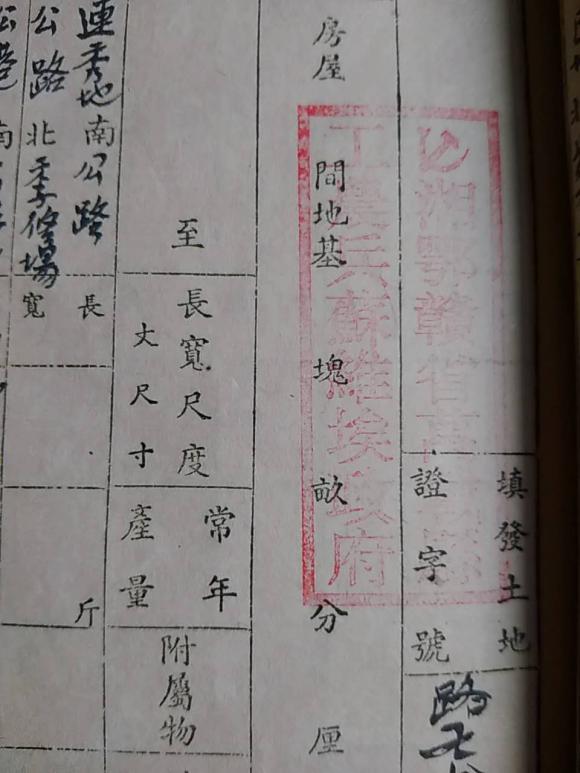 填發土地
證字號
路
湘鄂贛省萬
工農兵蘇維埃政府
房屋 間地基 塊 畝 分 厘
至
長寬尺度
丈尺寸
常年
產量
附屬物
連秀地南公路
長
斤
公路北季修場
寬